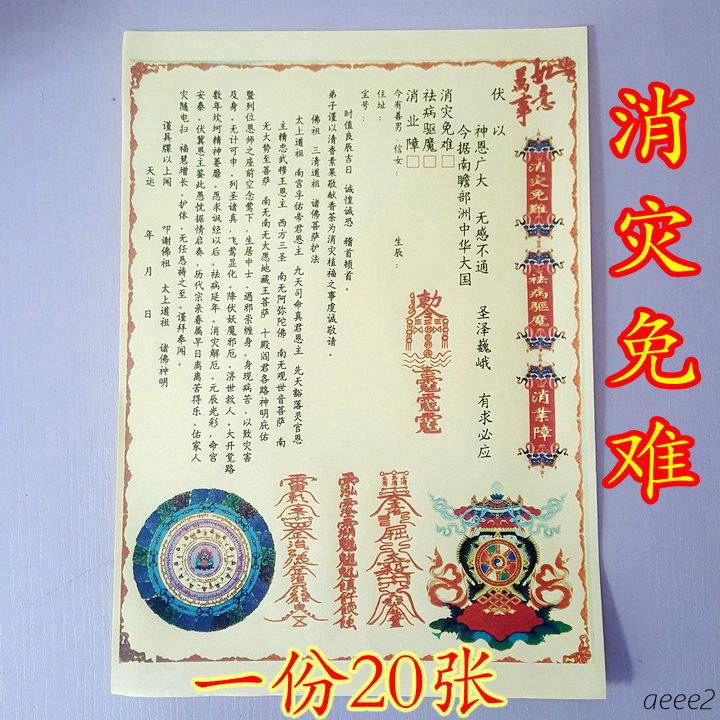 消灾免难
万事如意
消灾免难
祛病驱魔
消业障
伏以
神恩广大 无感不通 圣泽巍峨 有求必应
今据南瞻部洲中华大国
消灾免难□
祛病驱魔□
消业障□
今有善男/信女： 生辰：
住址：
宝号：
时值良辰吉日 诚惶诚恐 稽首顿首。
弟子谨以清香素果敬献香茶为消灾植福之事虔诚敬请。
佛祖 三清道祖 诸佛菩萨护法
太上道祖 南宫孚佑帝君恩主 九天司命真君恩主 先天豁落灵官恩
主精忠武穆王恩主 西方三圣 南无阿弥陀佛 南无观世音菩萨 南
无大势至菩萨 南无南无大愿地藏王菩萨 十殿阎君各路神明庇佑
暨列位恩师之座前空念莺下，生居中士，遇邪祟缠身，身现病苦、以致灾害
及身。无计可中。列圣诸真，飞莺显化。降伏妖魔邪厄。济世救人。大开觉路
数年坎坷精神萎靡。愿求讽经以后，祛病延年。消灾解厄。元辰光彩，命宫
安泰。伏冀恩主鉴此愚忱据情启奏，历代宗亲眷属早日离离苦得乐。佑家人
灾随电扫 福慧增长 护体，无任恳祷之至。谨拜奉闻。
谨具牒以上闻 叩谢佛祖 太上道祖 诸佛神明
天运 年 月 日
一份20张
aeee2